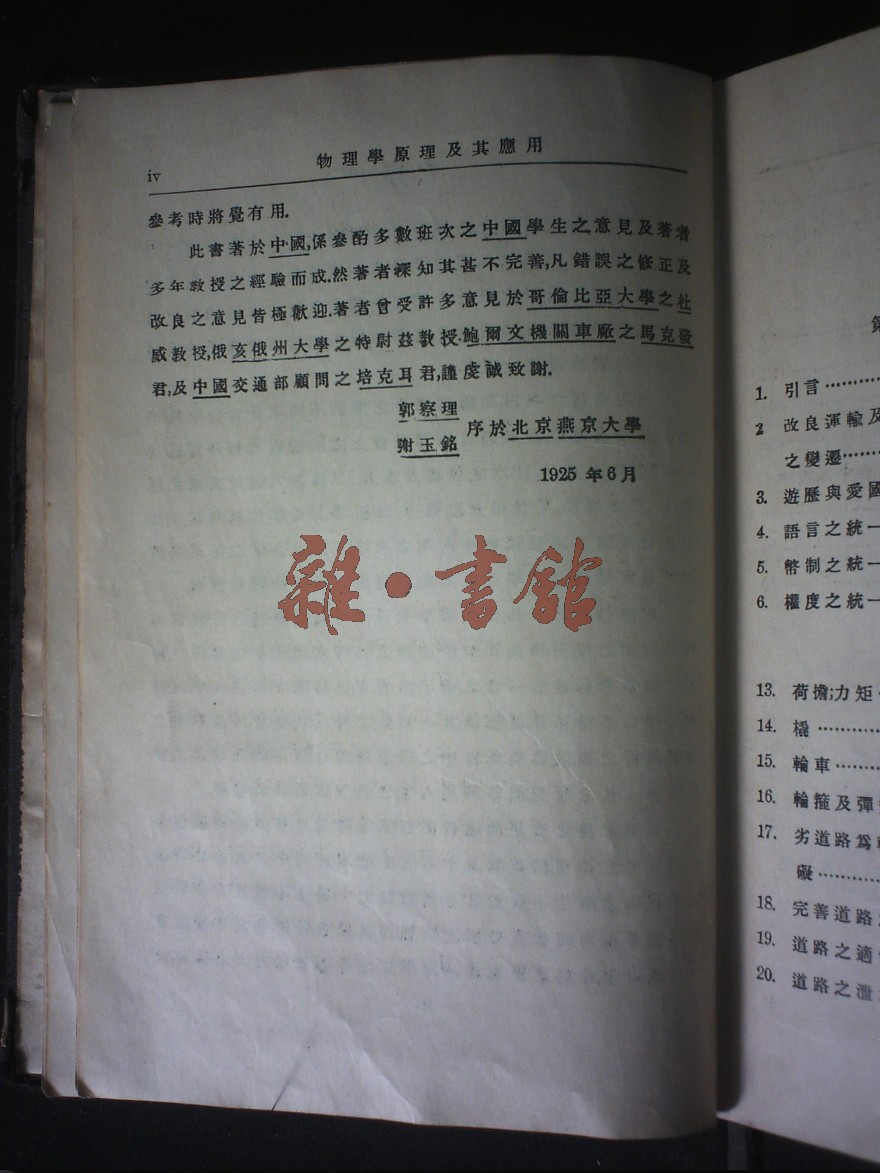 iv
物理學原理及其應用
參考時將覺有用.
此書著於中國,係參酌多數班次之中國學生之意見及著者
多年教授之經驗而成.然著者深知其甚不完善,凡錯誤之修正及
改良之意見皆極歡迎.著者曾受許多意見於哥倫比亞大學之杜
威教授,俄亥俄州大學之特尉茲教授,鮑爾文機關車廠之馬克發
君,及中國交通部顧問之培克耳君,謹虔誠致謝.
郭察理
謝玉銘
序於北京燕京大學
1925年6月
雜·書館
第
1. 引言
2 改良運輸及
之變遷
3. 遊歷與愛國
4. 語言之統一
5. 幣制之統一
6. 權度之統一
13. 荷擔;力矩
14. 橇
15. 輪車
16. 輪箍及彈
17. 劣道路爲
礙
18. 完善道路
19. 道路之適
20. 道路之泄